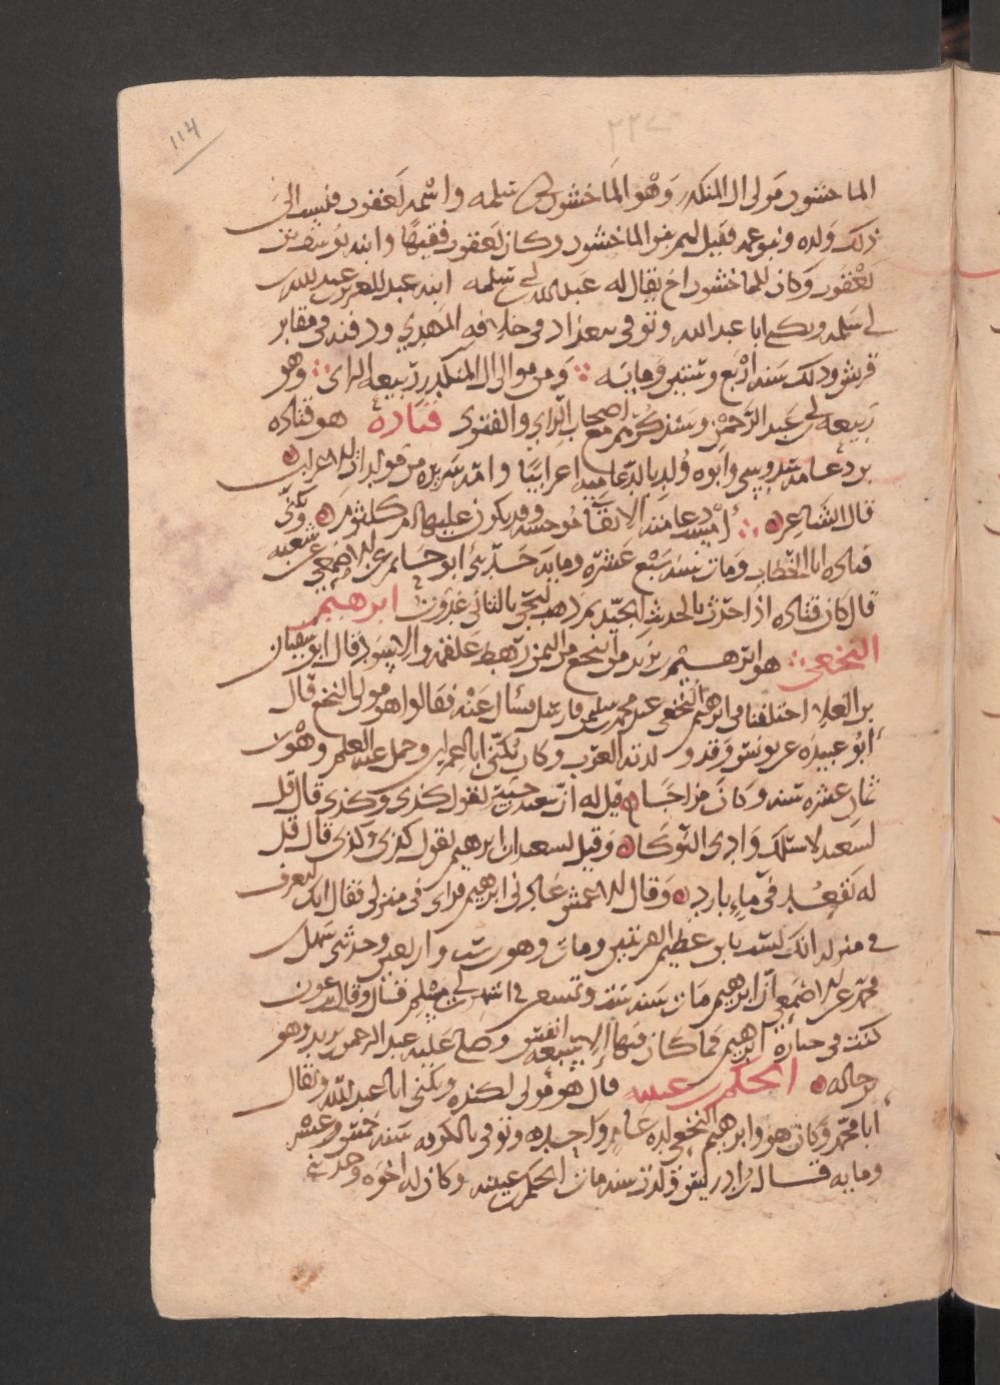 114
٢٢٧
الماجشون مولى ال المنكدر وهو الماجشون بن ابي سلمه واسمه يعقوب فنسب الى
ذلك ولده وبنو عمه فقيل لهم بنو الماجشون وكان يعقوب فقيها وابنه يوسف بن
يعقوب وكان للماجشون اخ يقال له عبد الله بن ابي سلمه ابنه عبد العزيز بن عبد الله بن
ابي سلمه ويكنى ابا عبد الله وتوفي ببغداد في خلافه المهدي ودفن في مقابر
قريش وذلك سنه اربع وستين ومايه ومن موالي ال المنكدر ربيعه الراي وهو
ربيعه بن ابي عبد الرحمن وسنذكره مع اصحاب الراي والفتوى قتادة هو قتاده
بن دعامه سدوسي وابوه ولد بالدعامه اعرابيا وامه سريه من مولدات الاعراب
قال الشاعر امست دعامه الانقا موحشه وقد يكون عليها ام كلثوم ويكنى
قتاده ابا الخطاب ومات سنه سبع عشره ومايه حدثني ابو حاتم عن الاصمعي عن شعبه
قال كان قتاده اذا حدث بالحديث الجيد ثم ذهب يجي بالثاني غدوه ابرهيم
النخعي هو ابرهيم بن يزيد من النخع من اليمن رهط علقمه والاسود قال ابو سفيان
بن العلا اختلفنا في ابرهيم النخعي عند محمد بن سليمن فارسل فسال عنه فقالوا هو مولى النخع قال
ابو عبيده عن يونس وقد ولدته العرب وكان يكنى ابا عمران وحمل عنه العلم وهو ابن
ثمان عشره سنه وكان مزاحا قيل له ان سعيد بن جبير يقول كذى وكذى قال قل
لسعيد لاسلك وادي النوكا وقيل لسعيد ان ابرهيم يقول كذى وكذى قال قل
له يقعد في ماء بارد وقال الاعمش عادني ابرهيم فراى في منزلي فقال انك لتعرف
في منزلك انك لست بابن عظيم القريتين ومات وهو ابن ست واربعين وحدثني سهل بن
محمد عن الاصمعي ان ابرهيم مات سنه ست وتسعين في اشهر ابي مسلم قال وقال ابن عون
كنت في جنازة ابرهيم فما كان فيها الا سبعه انفس وصلى عليه عبد الرحمن بن يزيد وهو
بن خاله الحكم بن عتيبه قال هو مولى لكنده ويكنى ابا عبد الله ويقال
ابا محمد وكان هو وابرهيم النخعي لده عام واحد وتوفي بالكوفه سنه خمس وعشر
ومايه قال بن ادريس ولدت سنه مات الحكم بن عتيبه وكان له اخوه وحدثني